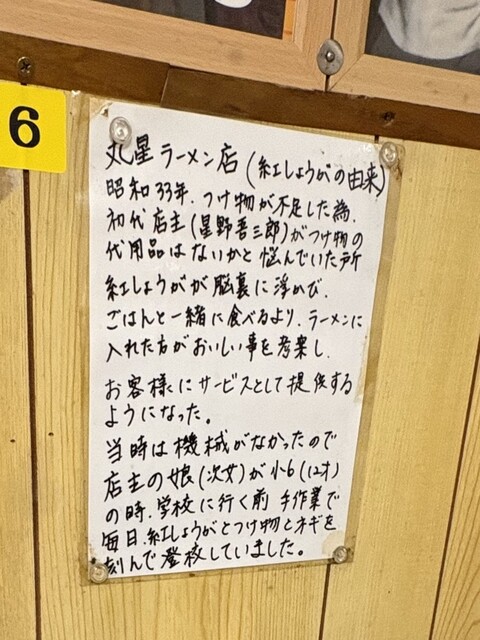 6
丸星ラーメン店(紅しょうがの由来)
昭和33年.つけ物が不足した為.
初代店主(星野吾三郎)がつけ物の
代用品はないかと悩んでいた所
紅しょうがが脳裏に浮かび.
ごはんと一緒に食べるより.ラーメンに
入れた方がおいしい事を考案し.
お客様にサービスとして提供する
ようになった。
当時は機械がなかったので
店主の娘(次女)が小6(12才)
の時.学校に行く前 手作業で
毎日.紅しょうがとつけ物とネギを
刻んで登校していました。